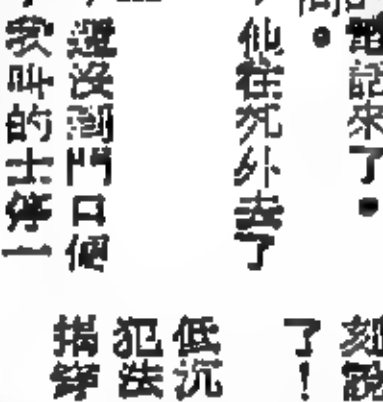 電話來了。
間。
他往死外去了
還沒到門口便
我叫的士停一
刻說
了！
低沉
犯法
揭穿